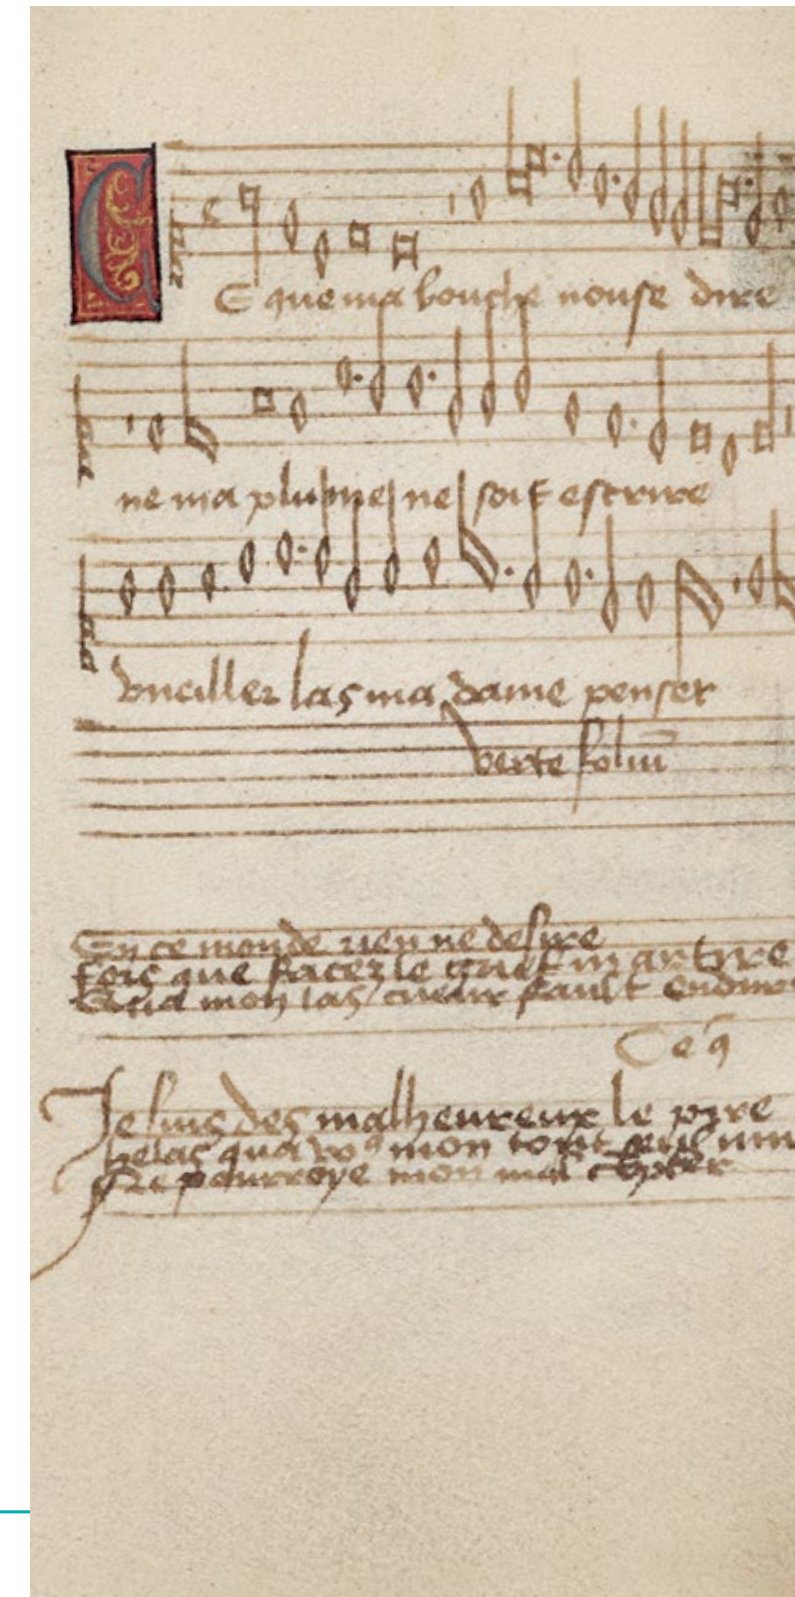 CE que ma bouche nouse dire
ne ma plume ne scit escrire
vueillez las ma dame penser
verte foliũ
En ce monde rien ne desire
fors que facez le grief martyre
Qua mon las cueur fault endur
Ce q̃
Je suis des malheureux le pire
helas qua voꝰ mon tout
Ne pourroye mon mal